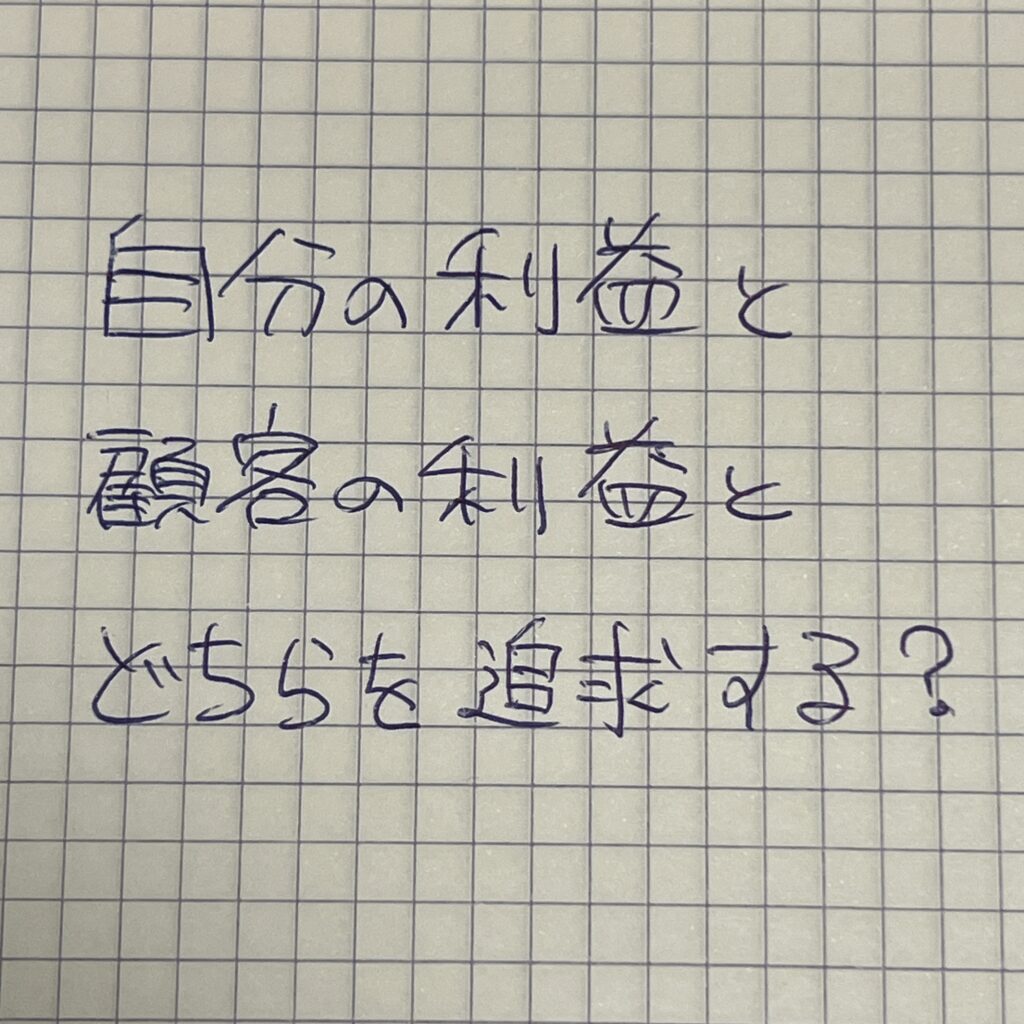 自分の利益と
顧客の利益と
どちらを追求する?